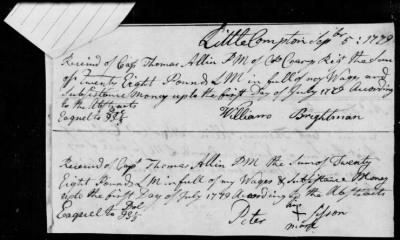 Little Compton Sepbr 5: 1779
Receivd of Capt Thomas Allin P M of Col Crary Rigt the Sum
of Twenty Eight Pounds L M in full of my Wages and
Subsistance Money up to the first Day of July 1779 Acording
to the Abstracts
Eaquel to
William Brightman
Receivd of Capt Thomas Allin P M the Sum of Twenty
Eight Pounds L M in full of my Wages & Subsistance Money
upto the first Day of July 1779 Acording to the Abstracts
Eaquel to
his
Peter + Jpson
mark